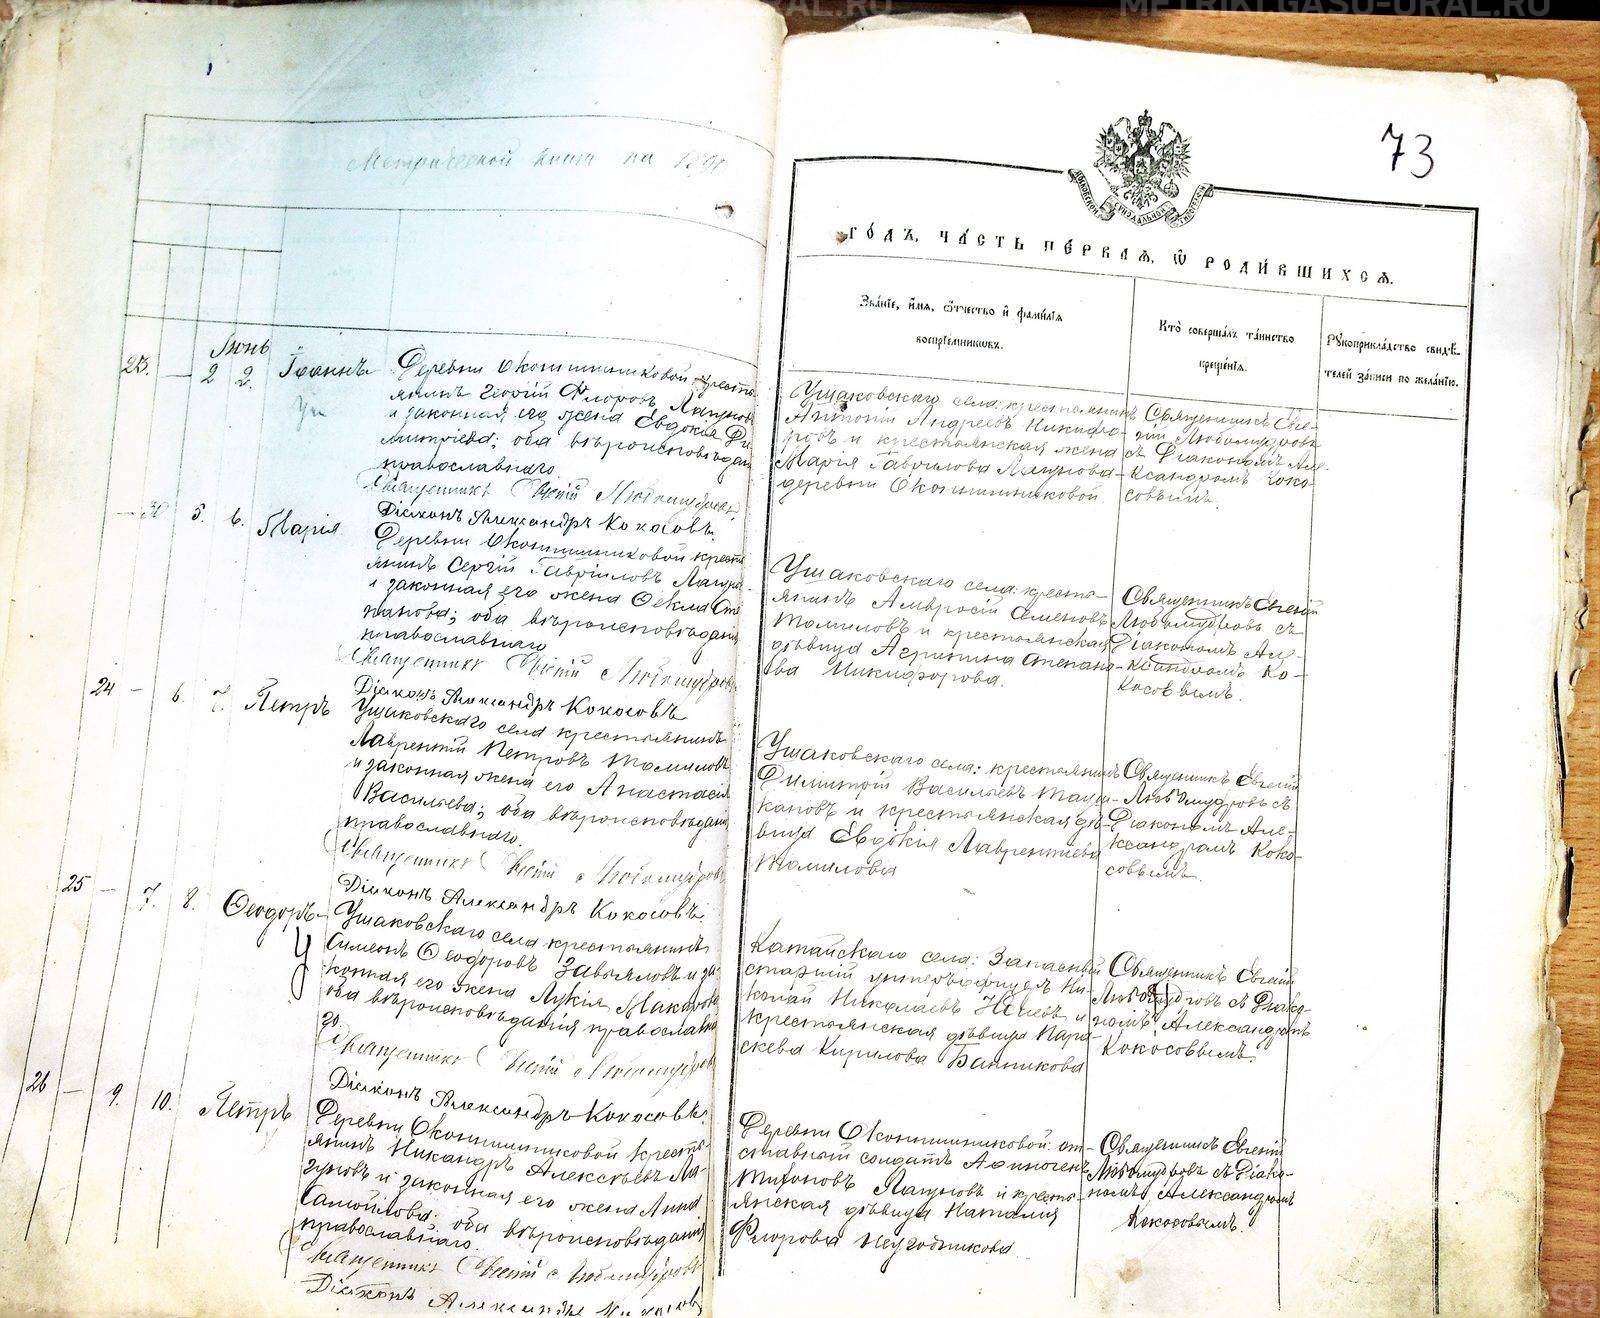 METRIKI.GASU-URAL.RU
METRIKI.GASU-URAL.RU
73
Метрической книги на 189
МОСКОВСКОЙ СѴНОДАЛЬНОЙ ТИПОГРАФІИ
ГОДЪ, ЧАСТЬ ПЕРВАЯ, Ѿ РОДИВШИХСЯ.
Званіе, имя, ѿчество и фамилія
воспріемниковъ.
Кто совершалъ таинство
крещенія.
Рукоприкладство свидѣ-
телей записи по желанію.
Іюнь
23. — 2 2. Іоаннъ
Деревни Оконишниковой кресть
янинъ Георгій Флоровъ Лагунов
и законная его жена Евдокія Ди
митріева; оба вѣроисповѣдан
православнаго
Священникъ Евгій Любомудровъ
Діаконъ Александръ Кокосовъ.
Ушаковскаго села: крестьянинъ
Антоній Андреевъ Никифо-
ровъ и крестьянская жена
Марія Гаврилова Лагунова
деревни Оконишниковой.
Священникъ Евге-
ній Любомудровъ
съ Діакономъ Але-
ксандромъ Коко-
совымъ.
— 30 5. 6. Марія
Деревни Оконишниковой кресть
янинъ Сергій Гавріиловъ Лагуно
и законная его жена Ѳекла Сте
панова; оба вѣроисповѣдания
православнаго
Священникъ Евгій Любомудровъ
Діаконъ Александръ Кокосовъ
Ушаковскаго села: кресть-
янинъ Амвросій Семеновъ
Томиловъ и крестьянская
дѣвица Агрипина Степано-
ва Никифорова.
Священникъ Евгеній
Любомудровъ съ
Діакономъ Але-
ксандромъ Ко-
косовымъ.
24 — 6. 7. Петръ
Ушаковскаго села крестьянинъ
Лаврентій Петровъ Томиловъ
и законная жена его Анастасія
Васильева; оба вѣроисповѣдан
православнаго.
Священникъ Евгій Любомудровъ
Діаконъ Александръ Кокосовъ.
Ушаковскаго села: крестьянинъ
Димитрій Васильевъ
кановъ и крестьянская дѣ-
вица Евдокія Лаврентіева
Томилова
Священникъ Евгеній
Любомудровъ съ
Діакономъ Але-
ксандромъ Коко-
совымъ.
25 — 7. 8. Ѳеодоръ
Ушаковскаго села крестьянинъ
Симеонъ Ѳеодоровъ Завьяловъ и за
конная его жена Лукія Макарова
оба вѣроисповѣданія православна
го.
Священникъ Евгій Любомудровъ
Діаконъ Александръ Кокосовъ.
Катайскаго села: Запасный
старшій унтеръ-офицеръ Ни-
колай Николаевъ и
крестьянская дѣвица Пара-
скева Кирилова Банникова
Священникъ Евгеній
Любомудровъ съ Діако-
номъ Александромъ
Кокосовымъ.
26 — 9. 10. Петръ
Деревни Оконишниковой кресть-
янинъ Никандръ Алексѣевъ Ла-
гуновъ и законная его жена Анна
Самойлова; оба вѣроисповѣданія
православнаго.
Священникъ Евгій Любомудровъ
Діаконъ Александръ Кокосовъ
Деревни Оконишниковой: от-
ставной солдатъ Аѳиногенъ
Тихоновъ Лагуновъ и кресть-
янская дѣвица Наталія
Флорова Неугодникова
Священникъ Евгеній
Любомудровъ съ Діако-
номъ Александромъ
Кокосовымъ.